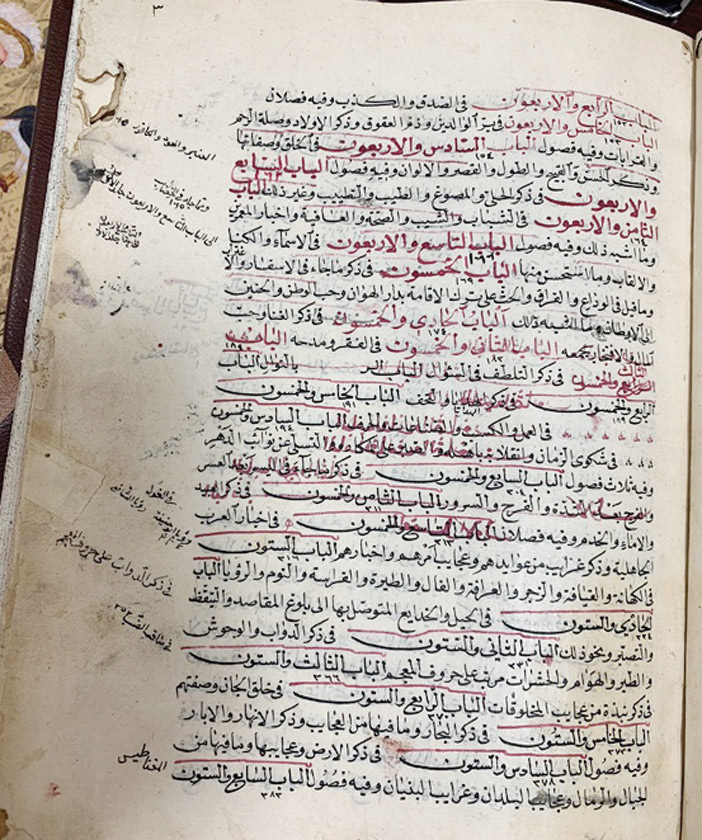 ٣
الباب الرابع والاربعون في الصدق والكذب وفيه فصلان
الباب الخامس والاربعون في بر الوالدين وذم العقوق وذكر الاولاد وصلة الرحم
والقرابات وفيه فصول الباب السادس والاربعون في الخلق وصفاتها
وذكر الحسن والقبح والطول والقصر والالوان وفيه فصول الباب السابع
والاربعون في ذكر الحلي والمصوغ والطيب والتطييب وغير ذلك الباب
الثامن والاربعون في الشباب والشيب والصحة والعافية واخبار المعمرين
وما اشبه ذلك وفيه فصول الباب التاسع والاربعون في الاسماء والكنى
والالقاب وما استحسن منها الباب الخمسون في ذكر ما جاء في الاسفار والا
وما قيل في الوداع والفراق والحث على ترك الاقامة بدار الهوان وحب الوطن والحنين
الى الاوطان وما اشبه ذلك الباب الحادي والخمسون في ذكر الغنا وحب
المال والافتخار بجمعه الباب الثاني والخمسون في الفقر ومدحه الباب
الثالث والخمسون في ذكر التلطف في السؤال الباب
الرابع والخمسون في ذكر الهدايا والتحف الباب الخامس والخمسون
في العمل والكسب والصناعات والحرف الباب السادس والخمسون
في شكوى الزمان وانقلابه باهله والصبر على المكاره والتسلي عن نوائب الدهر
وفيه ثلاث فصول الباب السابع والخمسون في ذكر ما جاء في اليسر بعد العسر
والفرج بعد الشدة والفرح والسرور الباب الثامن والخمسون في ذكر العبيد
والاماء والخدم وفيه فصلان الباب التاسع والخمسون في اخبار العرب
الجاهلية وذكر غرايب من عوايدهم وعجايب امرهم واخبارهم الباب الستون
في الكهانة والقيافة والزجر والعرافة والفال والطيرة والفراسة والنوم والرؤيا الباب
الحادي والستون في الحيل والخدايع المتوصل بها الى بلوغ المقاصد والتيقظ
والتبصر ونحو ذلك الباب الثاني والستون في ذكر الدواب والوحوش
والطير والهوام والحشرات مرتب على حروف المعجم الباب الثالث والستون
في ذكر نبذة من عجايب المخلوقات الباب الرابع والستون في خلق الجان وصفتهم
الباب الخامس والستون في ذكر البحار وما فيها من العجايب وذكر الانهار والابار
وفيه فصول الباب السادس والستون في ذكر الارض وعجايبها وما فيها من
الجبال والرمال وعجايب البلدان وغرايب البنيان وفيه فصول الباب السابع والستون
٣٨٣
العنبر والعود والكافور
الى الباب التاسع والاربعون
في ذكر الدواب على حروف المعجم
المغناطيس